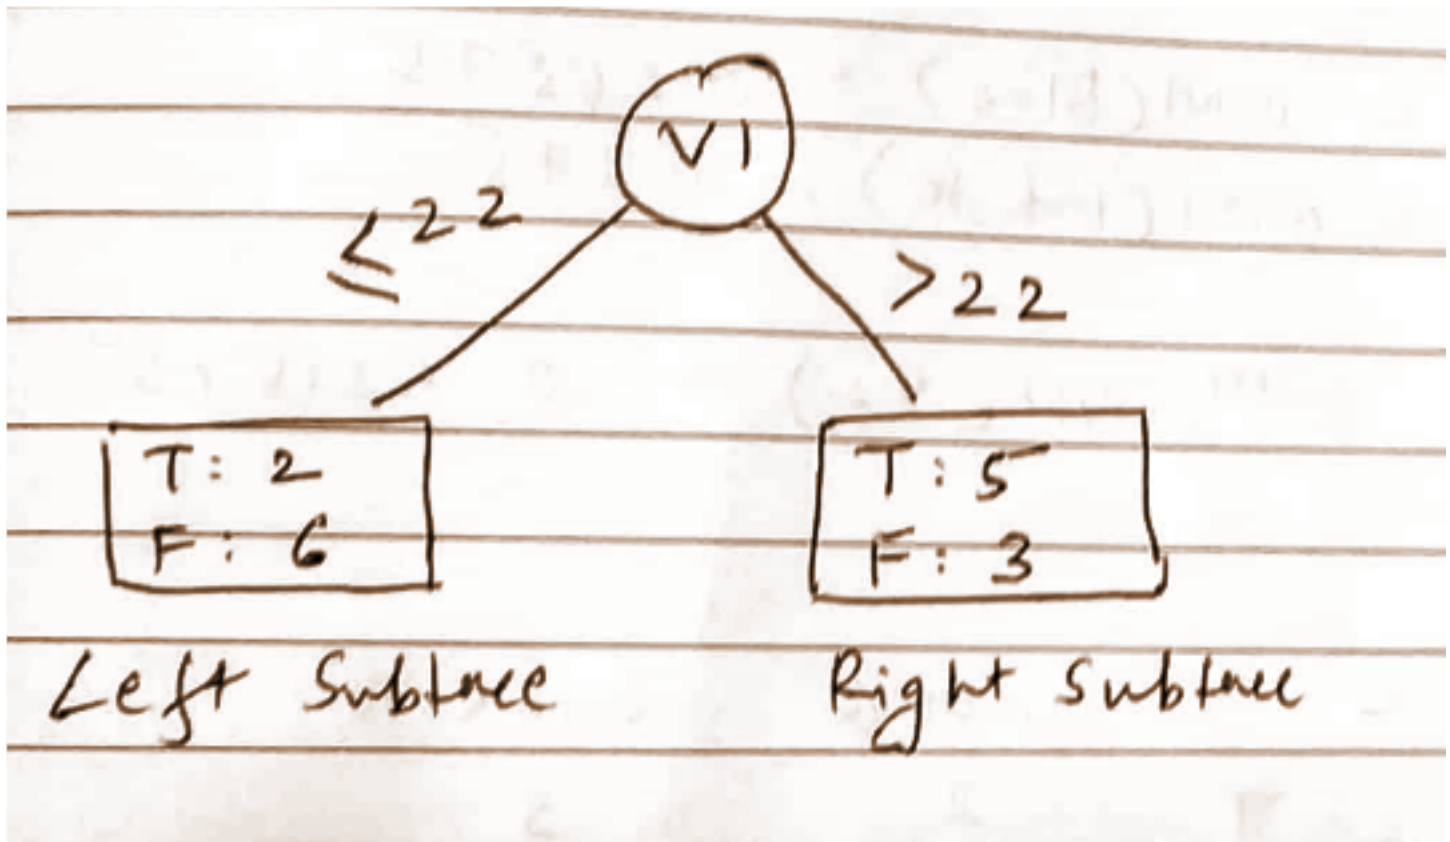 V1
≤ 22
> 22
T: 2
F: 6
T: 5
F: 3
Left Subtree
Right Subtree